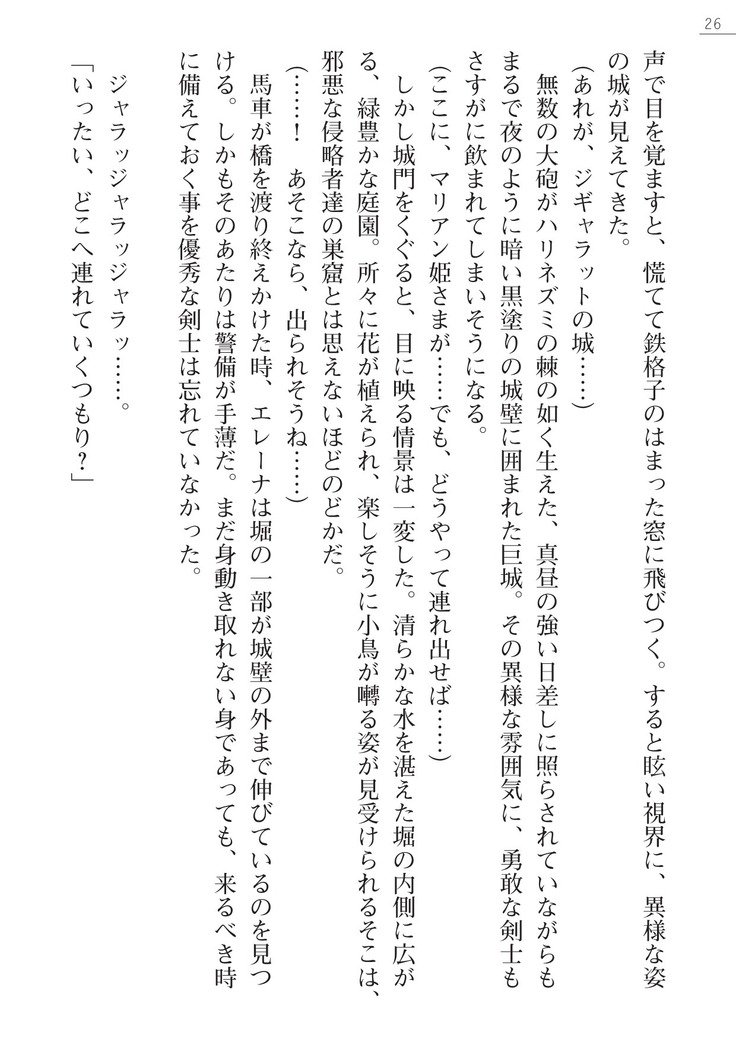 26
声で目を覚ますと、慌てて鉄格子のはまった窓に飛びつく。すると眩い視界に、異様な姿
の城が見えてきた。
（あれが、ジギャラットの城……）
　無数の大砲がハリネズミの棘の如く生えた、真昼の強い日差しに照らされていながらも
まるで夜のように暗い黒塗りの城壁に囲まれた巨城。その異様な雰囲気に、勇敢な剣士も
さすがに飲まれてしまいそうになる。
（ここに、マリアン姫さまが……でも、どうやって連れ出せば……）
　しかし城門をくぐると、目に映る情景は一変した。清らかな水を湛えた堀の内側に広が
る、緑豊かな庭園。所々に花が植えられ、楽しそうに小鳥が囀る姿が見受けられるそこは、
邪悪な侵略者達の巣窟とは思えないほどのどかだ。
（……！　あそこなら、出られそうね……）
　馬車が橋を渡り終えかけた時、エレーナは堀の一部が城壁の外まで伸びているのを見つ
ける。しかもそのあたりは警備が手薄だ。まだ身動き取れない身であっても、来るべき時
に備えておく事を優秀な剣士は忘れていなかった。
　ジャラッジャラッジャラッ……。
「いったい、どこへ連れていくつもり？」